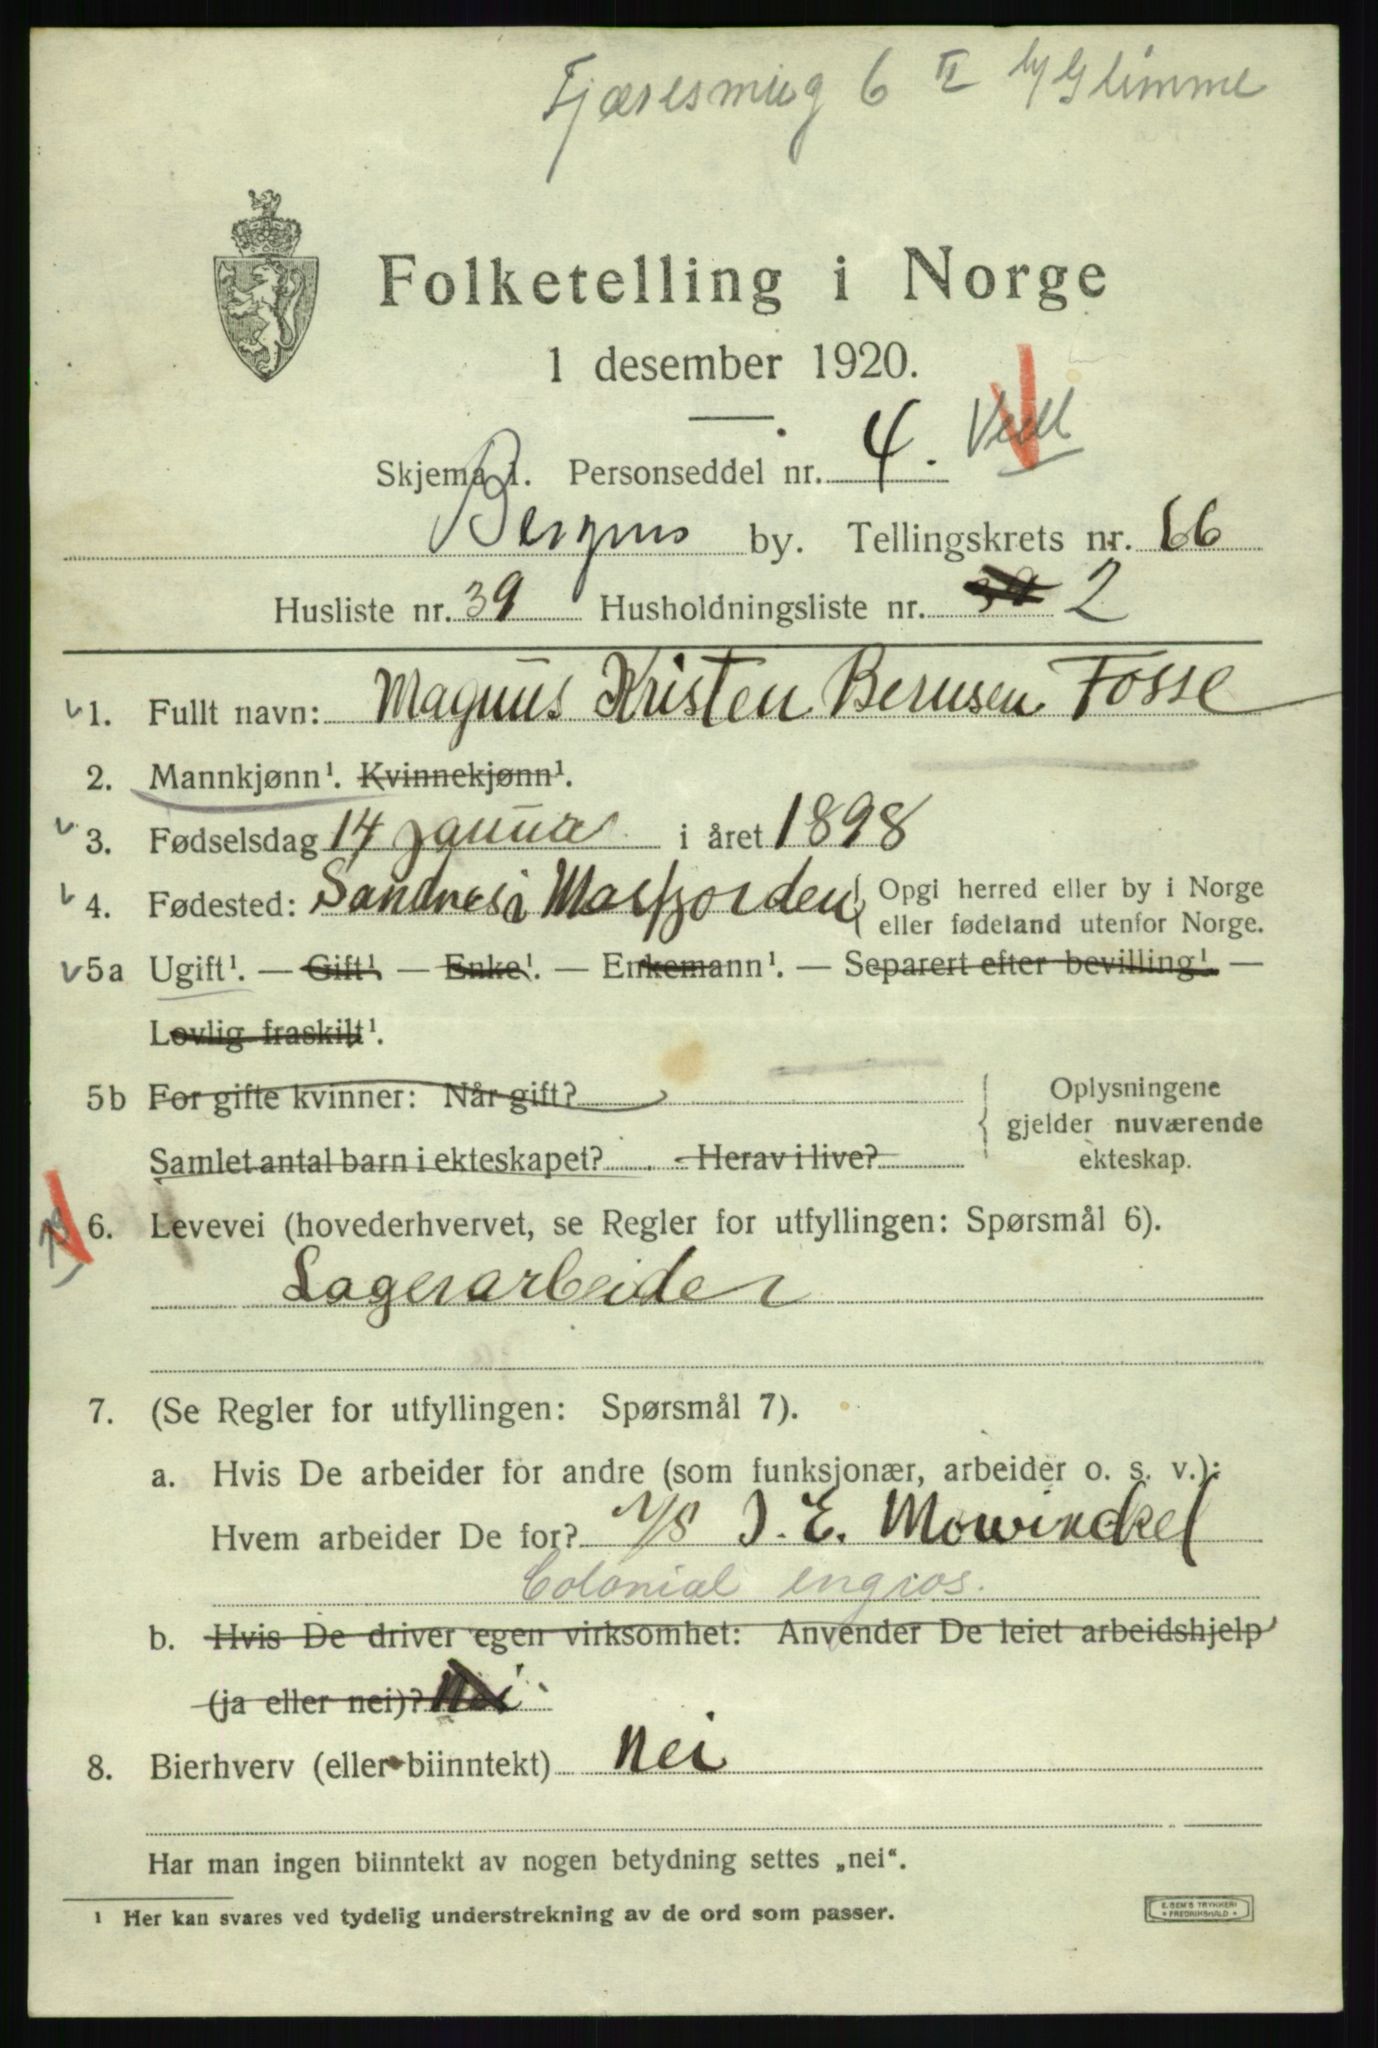 Fjæresmug 6 II b/ Glimme
Folketelling i Norge
1 desember 1920.
Skjema 1. Personseddel nr. 4.
Bergens by. Tellingskrets nr. 66
Husliste nr. 39 Husholdningsliste nr. 39 2
1. Fullt navn: Magnus Kristen Bernsen Fosse
2. Mannkjønn¹. Kvinnekjønn¹.
3. Fødselsdag 14 januar i året 1898
4. Fødested: Sandnes i Masfjorden { Opgi herred eller by i Norge
eller fødeland utenfor Norge.
5a Ugift¹. — Gift¹ — Enke¹. — Enkemann¹. — Separert efter bevilling¹. —
Lovlig fraskilt¹.
5b For gifte kvinner: Når gift?
Samlet antal barn i ekteskapet? Herav i live?
Oplysningene
gjelder nuværende
ekteskap.
6. Levevei (hovederhvervet, se Regler for utfyllingen: Spørsmål 6).
Lagerarbeider
7. (Se Regler for utfyllingen: Spørsmål 7).
a. Hvis De arbeider for andre (som funksjonær, arbeider o. s. v.):
Hvem arbeider De for? A/S J. E. Mowinckel
Colonial engros.
b. Hvis De driver egen virksomhet: Anvender De leiet arbeidshjelp
(ja eller nei)? Nei
8. Bierhverv (eller biinntekt) Nei
Har man ingen biinntekt av nogen betydning settes „nei“.
¹ Her kan svares ved tydelig understrekning av de ord som passer.
E. SEM'S TRYKKERI
• FREDRIKSHALD •